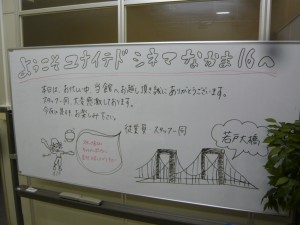 ようこそ ユナイテドシネマ なかま16へ
本日は、お忙しい中、当館へお越し頂き誠にありがとうございます。
スタッフ一同、大変感激しております。
今日は
お楽しみ下さい。
従業員・スタッフ一同
若戸大橋